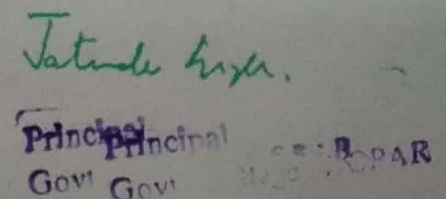 Jatinder Singh.
Principal Principal
Govt Govt ROPAR